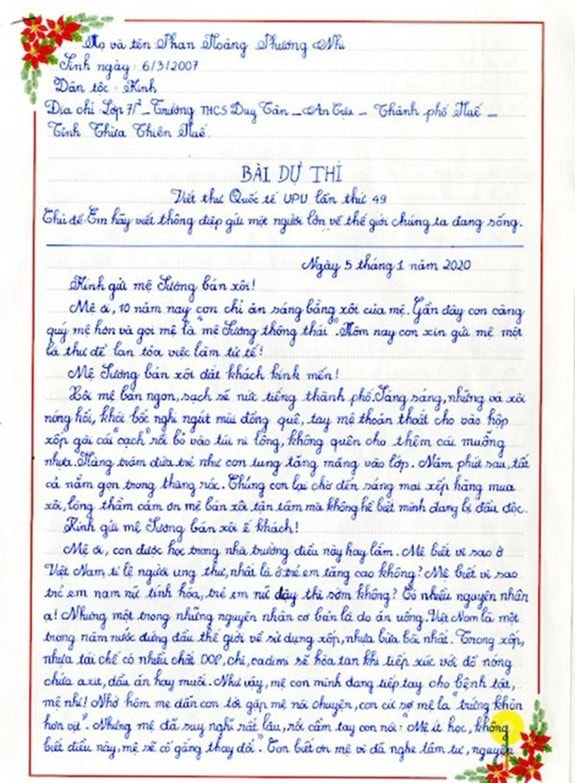 Họ và tên Phan Hoàng Phương Nhi
Sinh ngày: 6/3/2007
Dân tộc: Kinh
Địa chỉ: Lớp 7/² - Trường THCS Duy Tân - An Cựu - Thành phố Huế -
Tỉnh Thừa Thiên Huế.
BÀI DỰ THI
Viết thư Quốc tế UPU lần thứ 49
Chủ đề: Em hãy viết thông điệp gửi một người lớn về thế giới chúng ta đang sống.
Ngày 5 tháng 1 năm 2020
Kính gửi mệ Sương bán xôi!
Mệ ơi, 10 năm nay con chỉ ăn sáng bằng xôi của mệ. Gần đây con càng
quý mệ hơn và gọi mệ là "mệ Sương thông thái". Hôm nay con xin gửi mệ một
lá thư để lan tỏa việc làm tử tế!
Mệ Sương bán xôi đắt khách kính mến!
Xôi mệ bán ngon, sạch sẽ nức tiếng thành phố. Sáng sáng, những vá xôi
nóng hổi, khói bốc nghi ngút mùi đồng quê, tay mệ thoăn thoắt cho vào hộp
xốp gài cái "cạch" rồi bỏ vào túi ni lông, không quên cho thêm cái muỗng
nhựa. Hàng trăm đứa trẻ như con tung tăng mang vào lớp. Năm phút sau, tất
cả nằm gọn trong thùng rác. Chúng con lại chờ đến sáng mai xếp hàng mua
xôi, lòng thầm cảm ơn mệ bán xôi tận tâm mà không hề biết mình đang bị đầu độc.
Kính gửi mệ Sương bán xôi ế khách!
Mệ ơi, con được học trong nhà trường điều này hay lắm. Mệ biết vì sao ở
Việt Nam, tỉ lệ người ung thư, nhất là ở trẻ em tăng cao không? Mệ biết vì sao
trẻ em nam nữ tính hóa, trẻ em nữ dậy thì sớm không? Có nhiều nguyên nhân
ạ! Nhưng một trong những nguyên nhân cơ bản là do ăn uống. Việt Nam là một
trong năm nước đứng đầu thế giới về sử dụng xốp, nhựa bừa bãi nhất. Trong xốp,
nhựa tái chế có nhiều chất DOP, chì, cadimi sẽ hòa tan khi tiếp xúc với đồ nóng
chứa axit, dầu ăn hay muối. Như vậy, mệ con mình đang tiếp tay cho bệnh tật,
mệ nhỉ! Nhớ hôm mẹ dẫn con tới gặp mệ nói chuyện, con cứ sợ mệ la "trứng khôn
hơn vịt". Nhưng mệ đã suy nghĩ rất lâu, rồi cầm tay con nói: "Mệ ít học, không
biết điều này, mệ sẽ cố gắng thay đổi". Con biết ơn mệ vì đã nghe tâm tư, nguyện